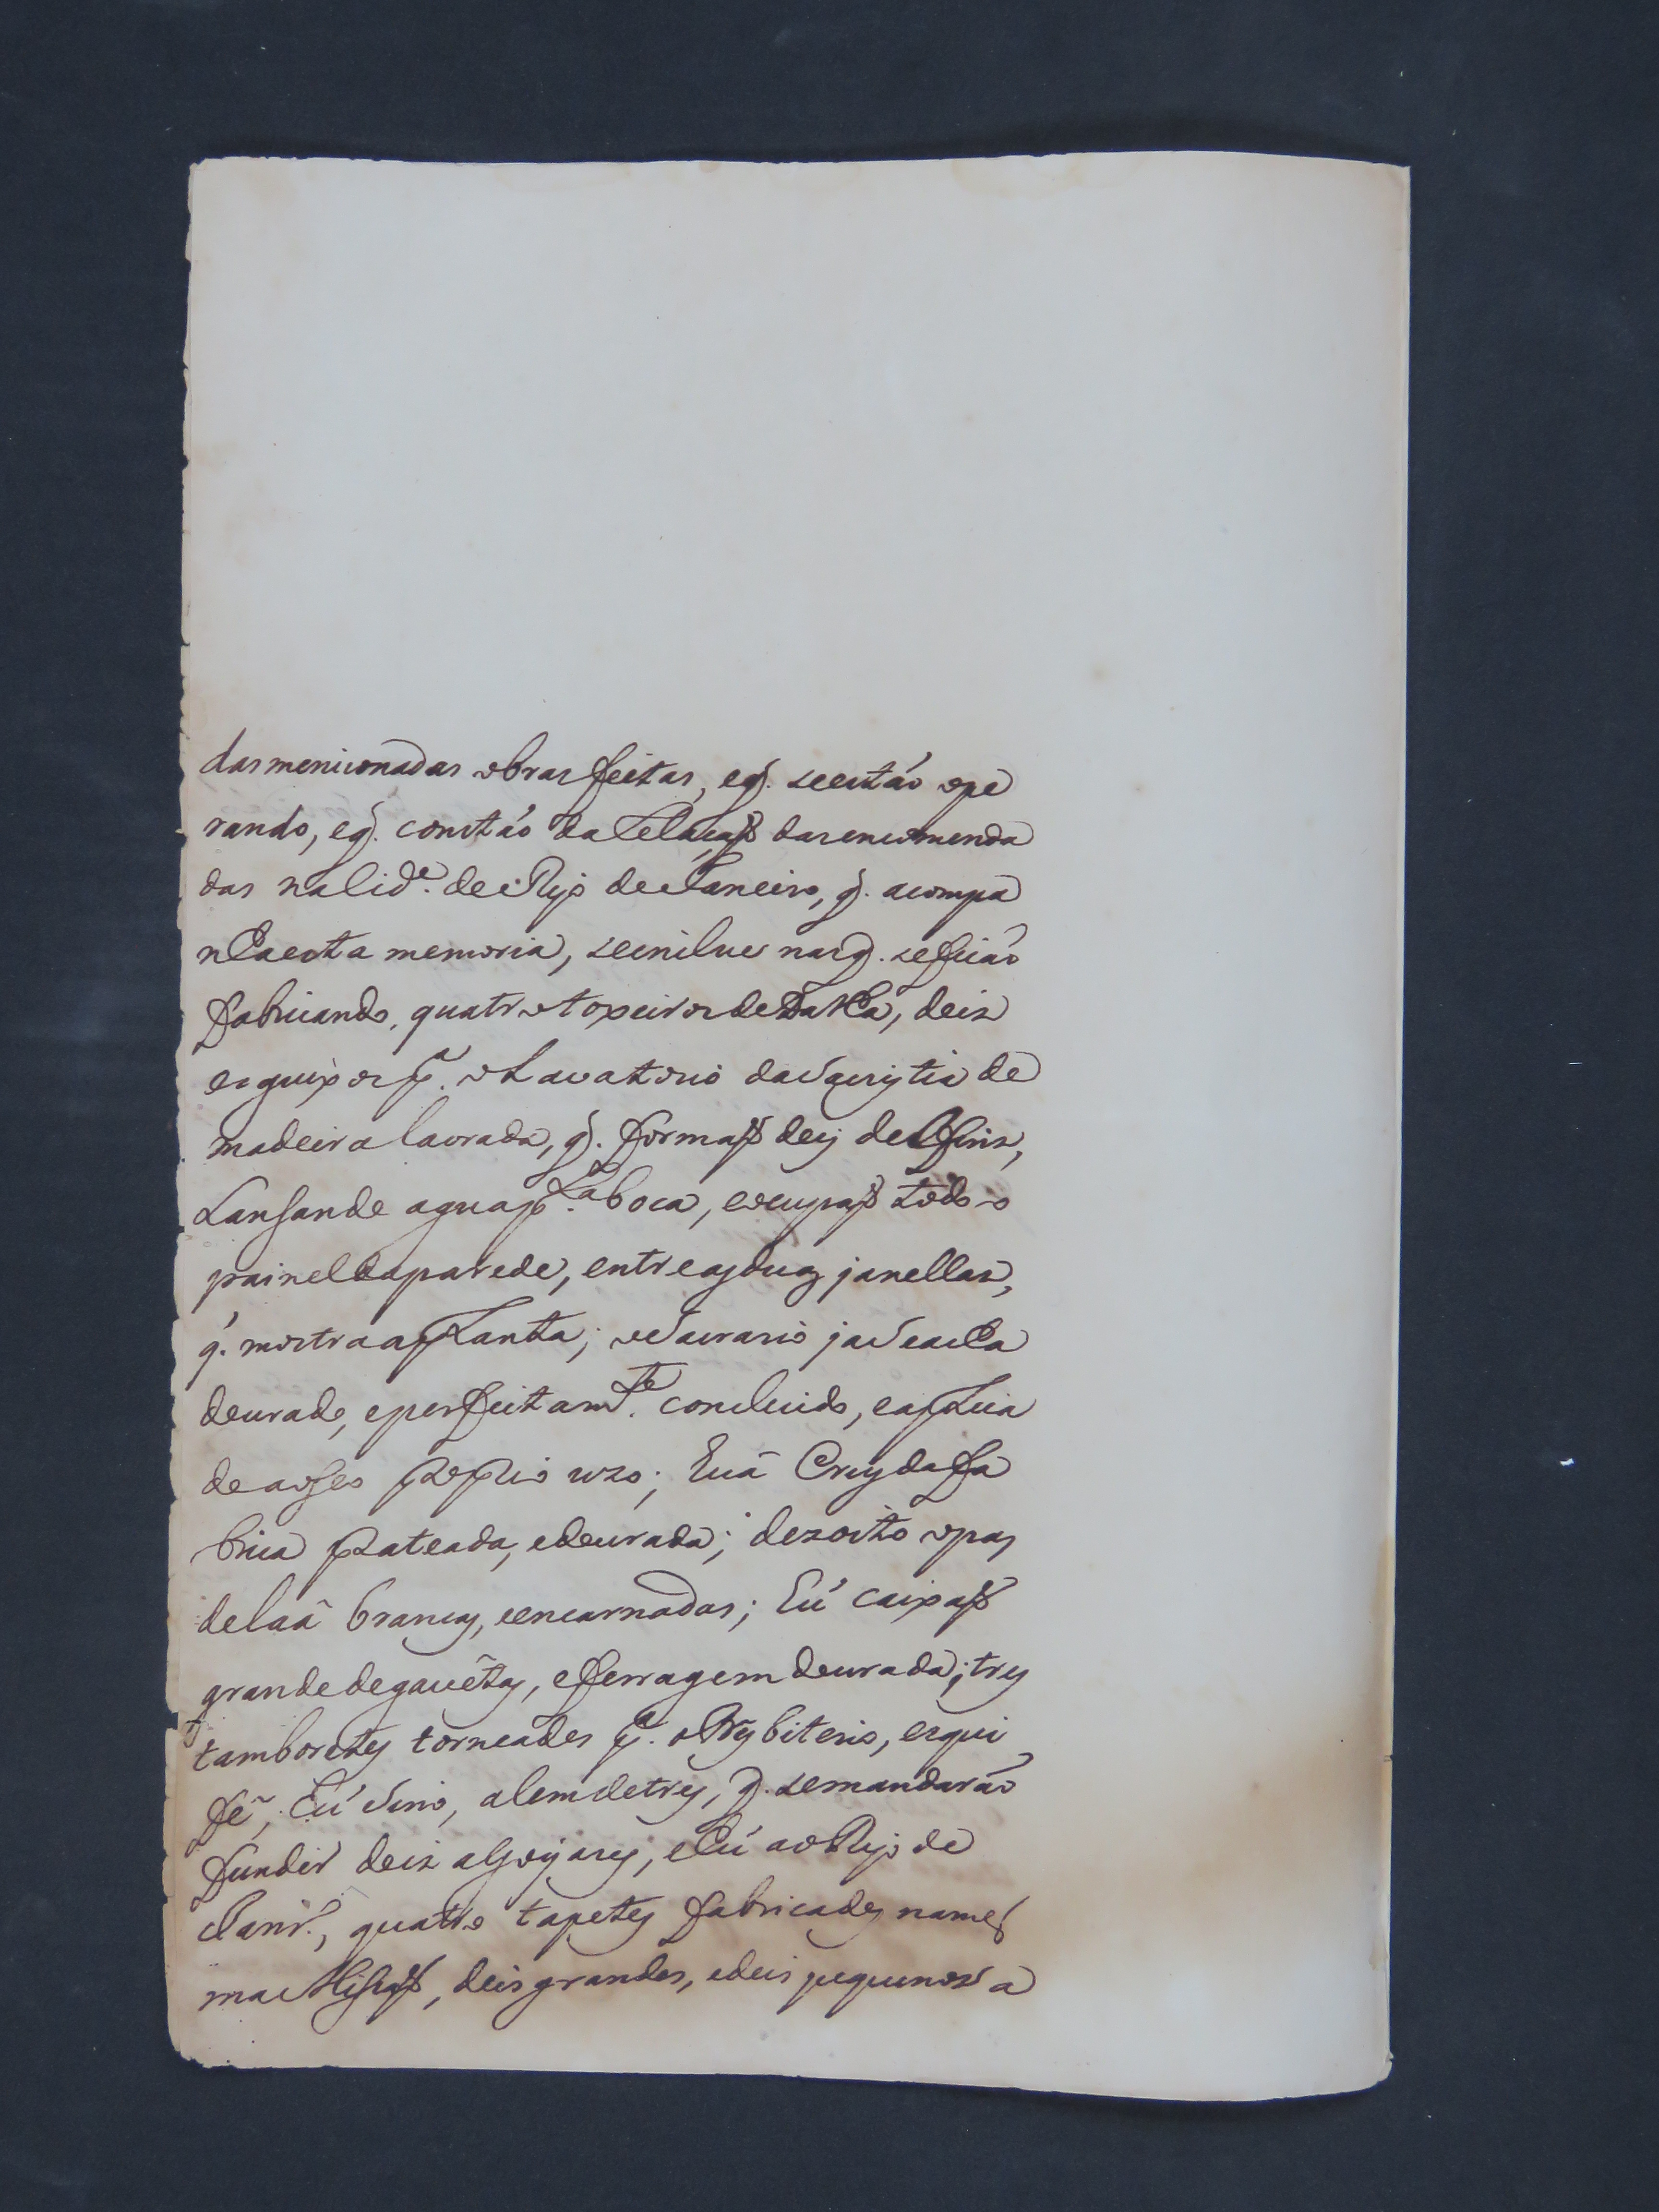 das mencionadas obras feitas, e q̃. se estáo ope
rando, e q̃. constáo da Relaçaõ das encomenda
das na Cid.e de Rijo de Janeiro, q̃. acompa
nha esta memoria, se inclue nas q̃. se ficáo
fabricando, quatro toxeiros de Talha, dois
esguixos p.a o Lavatorio da Sacrystia de
madeira lavrada, q̃. formaõ doiz delfins,
Lansando agua p.la boca, e ocupaõ todo o
painel da parede, entre as duas janellas,
q̃. mostra a planta; o Sacrario ja se acha
dourado, e perfeitam.te concluido, e a pluia
de aoseo proprio uzo; huã Cruz da fa
brica prateada, e dourada; dezoito opas
de laã brancas, e encarnadas; hú caixaõ
grande de gavêtas, e ferragem dourada; tres
tamboretes torneados p.a o Presbiterio, e aqui
fé, hú Sino, alem de tres, q̃. se mandaráo
fundir dois a Goyazes, e hú ao Rijo de
Janr.o, quatro tapetes fabricados na mes
ma Missaõ, dois grandes, e dois pequenos a